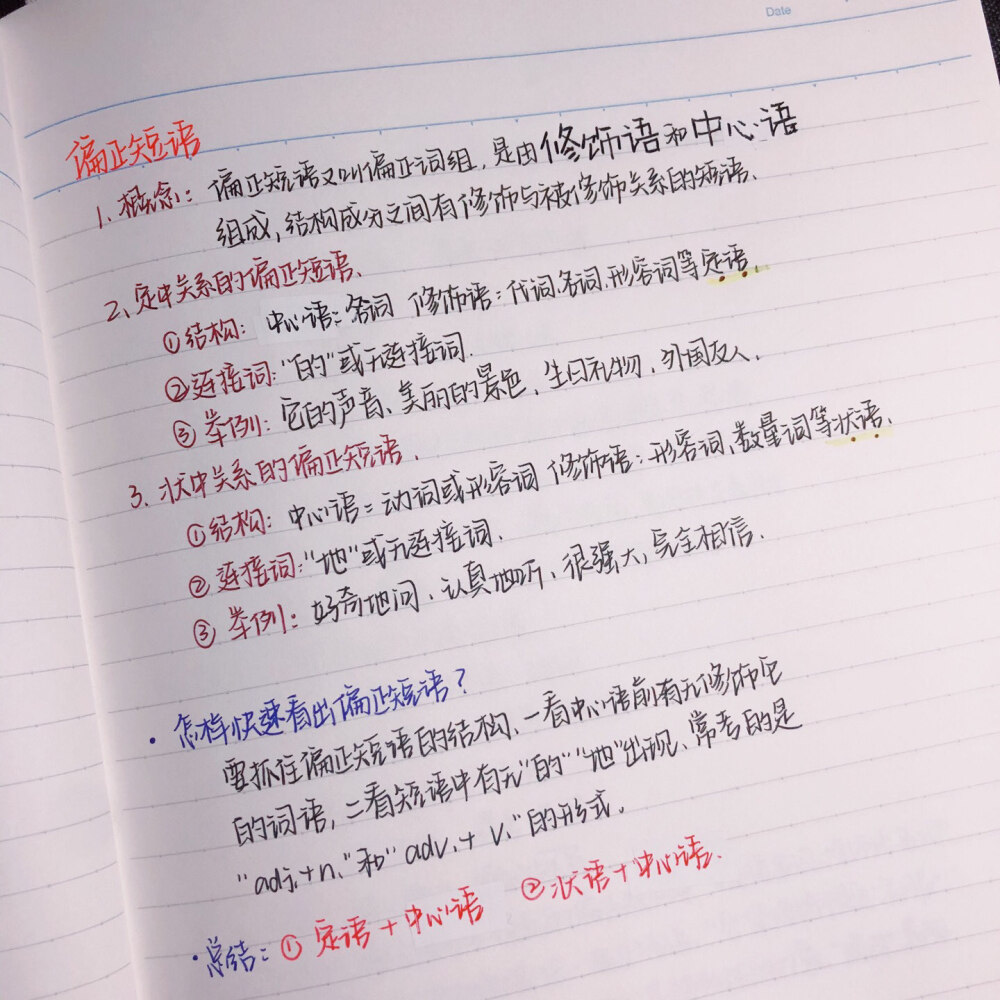 Date
偏正短语
1、概念：偏正短语又叫偏正词组，是由修饰语和中心语
组成，结构成分之间有修饰与被修饰关系的短语、
2、定中关系的偏正短语、
①结构：中心语：名词 修饰语：代词、名词、形容词等定语、
②连接词："的"或无连接词．
③举例：它的声音、美丽的景色，生日礼物，外国友人．
3、状中关系的偏正短语．
①结构：中心语：动词或形容词 修饰语：形容词、数量词等状语、
②连接词："地"或无连接词．
③举例：好奇地问、认真地听、很强大，完全相信．
·怎样快速看出偏正短语？
要抓住偏正短语的结构、一看中心语前有无修饰它
的词语，二看短语中有无"的""地"出现、常考的是
"adj.+n."和"adv.+v."的形式．
·总结：①定语+中心语 ②状语+中心语．